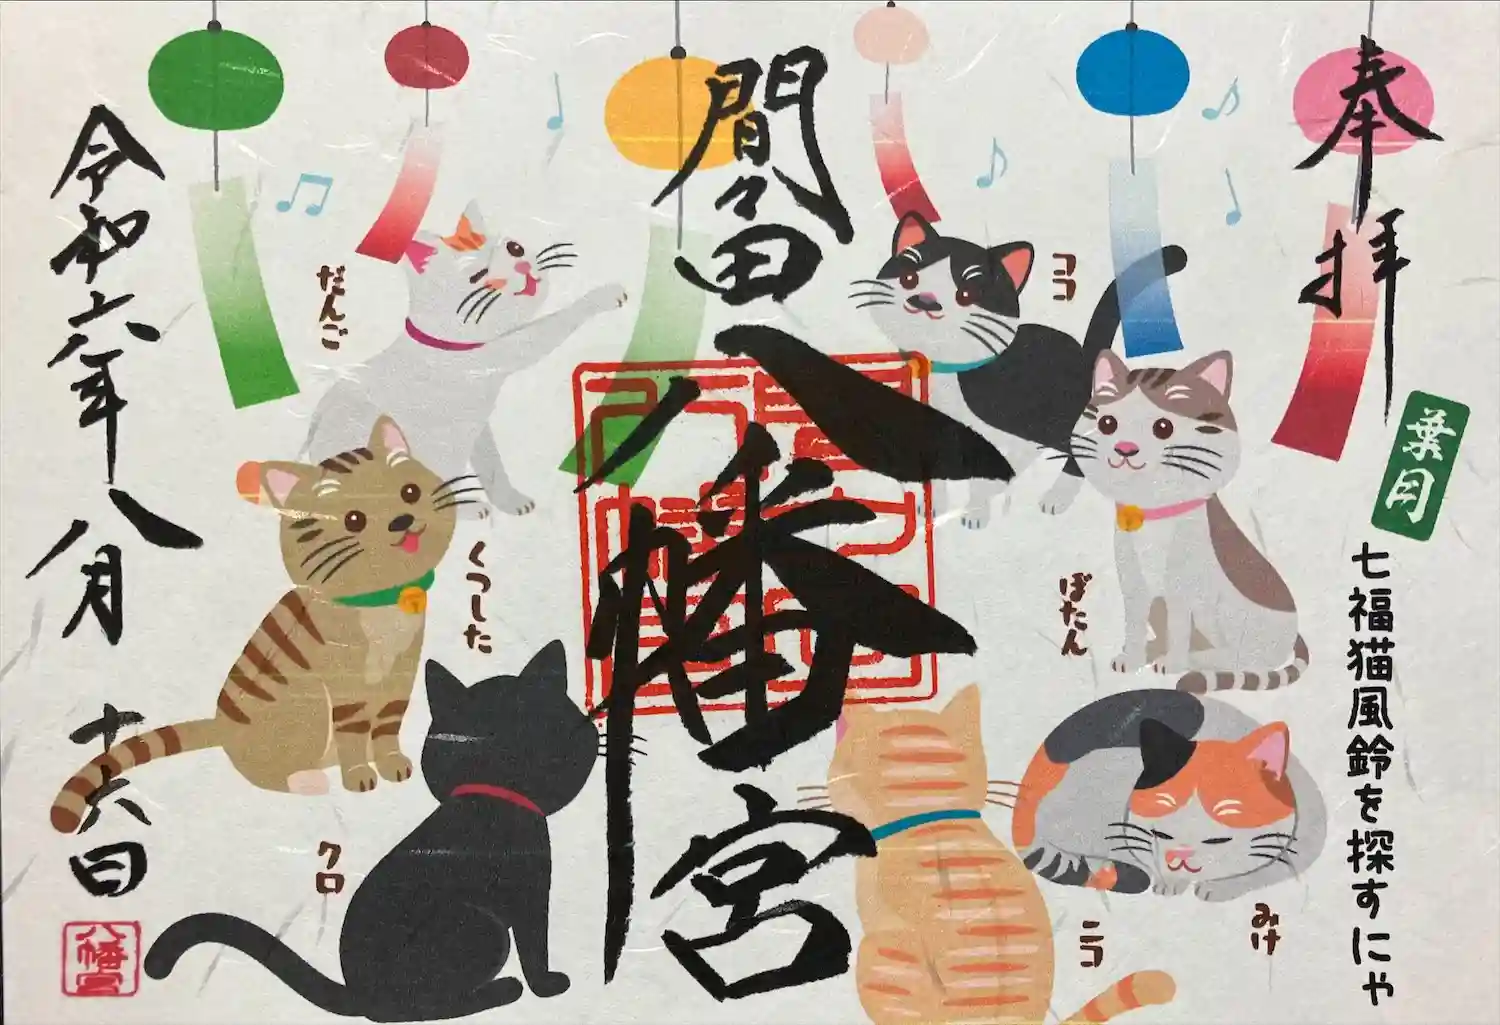 奉拝
葉月
七福猫風鈴を探すにゃ
間々田
八幡宮
ココ
ぼたん
みけ
ニコ
だんご
くつした
クロ
令和六年八月十六日
八幡宮